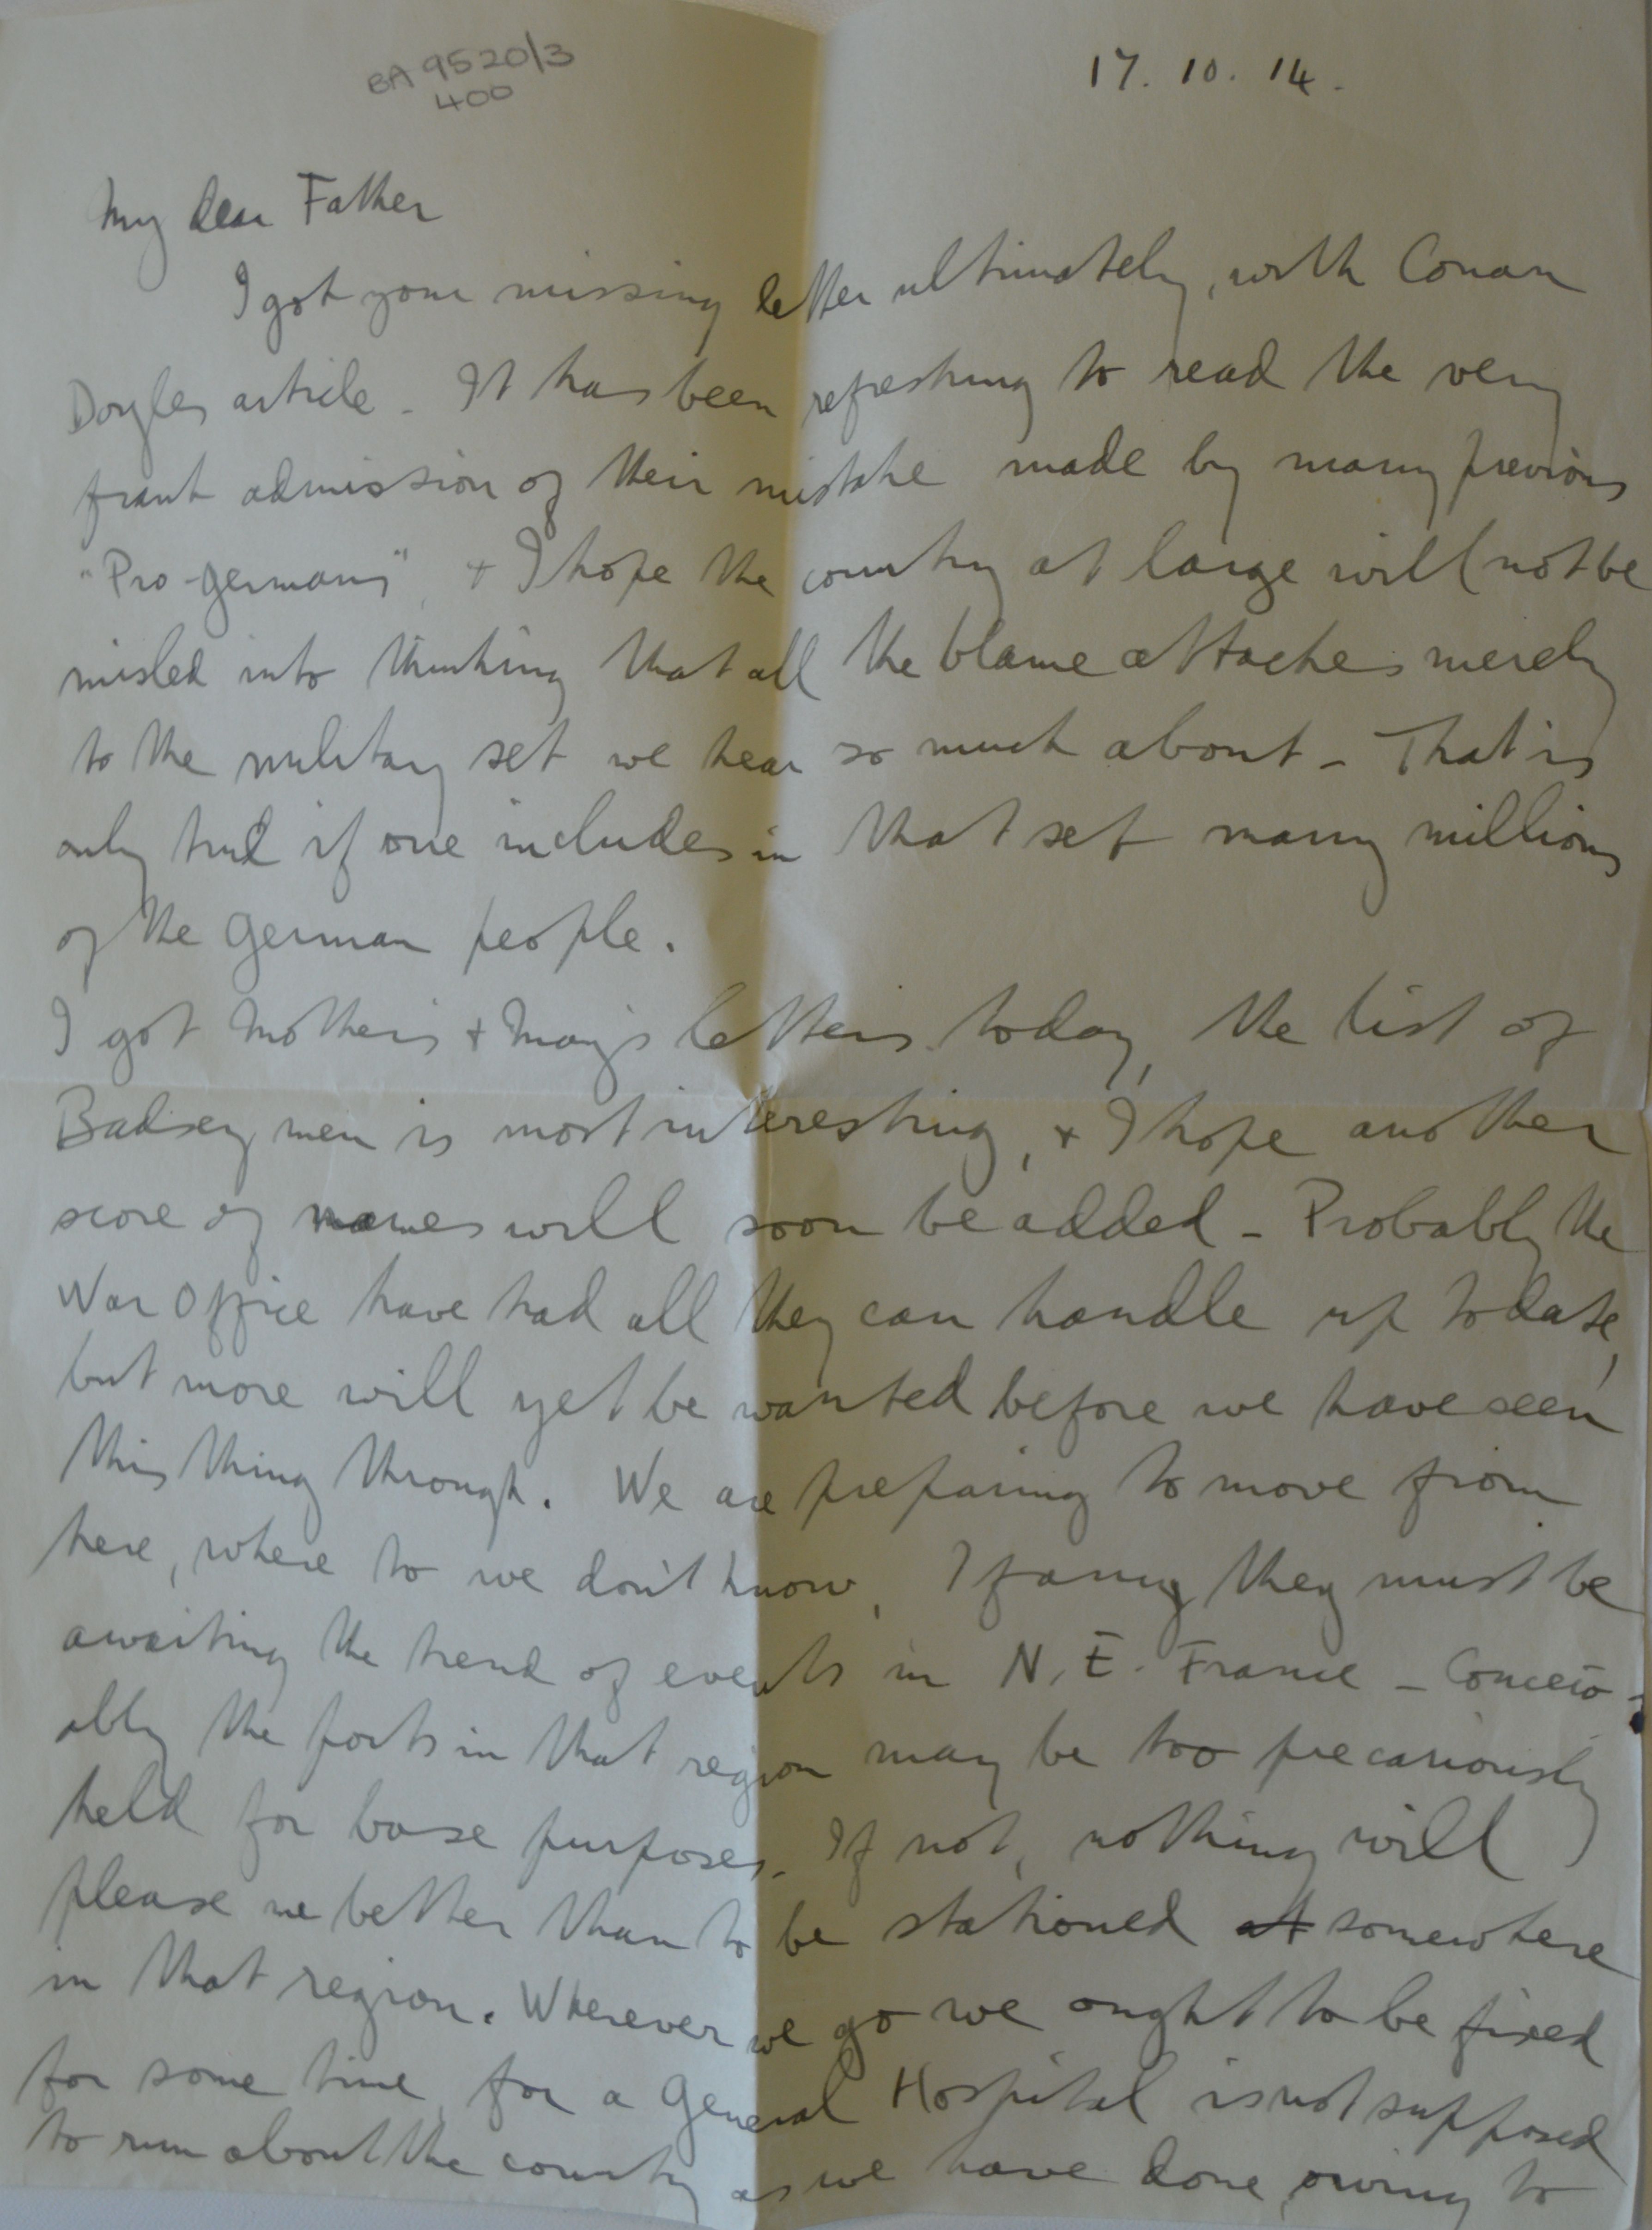 BA 9520/3
400
17. 10. 14.
My dear Father
I got your missing letter ultimately, with Conan
Doyles article. It has been refreshing to read the very
frank admission of their mistake made by many previous
"Pro-Germans", + I hope the country at large will not be
misled into thinking that all the blame attaches merely
to the military set we hear so much about - That is
only true if one includes in that set many millions
of the German people.
I got Mother's + May's letters today, the list of
Badsey men is most interesting, + I hope another
score of names will soon be added - Probably the
War Office have had all they can handle up to date,
but more will yet be wanted before we have seen
this thing through. We are preparing to move from
here, where to we don't know, I fancy they must be
awaiting the trend of events in N.E. France - Conceiv-
ably the ports in that region may be too precariously
held for base purposes. If not, nothing will
please me better than to be stationed at somewhere
in that region. Wherever we go we ought to be fixed
for some time, for a General Hospital is not supposed
to run about the country as we have done, owing to